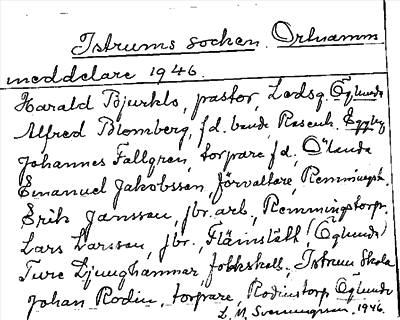 Istrums socken. Ortnamn
meddelare 1946.
Harald Bjurklo, pastor, Ledsg. Öglunda
Alfred Blomberg, f.d. bonde, Rasenk. Eggby
Johannes Fallgren, torpare f.d., Ölanda
Emanuel Jakobsson, förvaltare, Remningst.
Erik Jansson, jbr. arb., Remmingstorp.
Lars Larsson, jbr., Flämslätt (Öglunda)
Ture Ljunghammar, folkskoll., Istrum Skola
Johan Rodin, torpare, Rodinstorp Öglunda
L. M. Svenungsson, 1946.